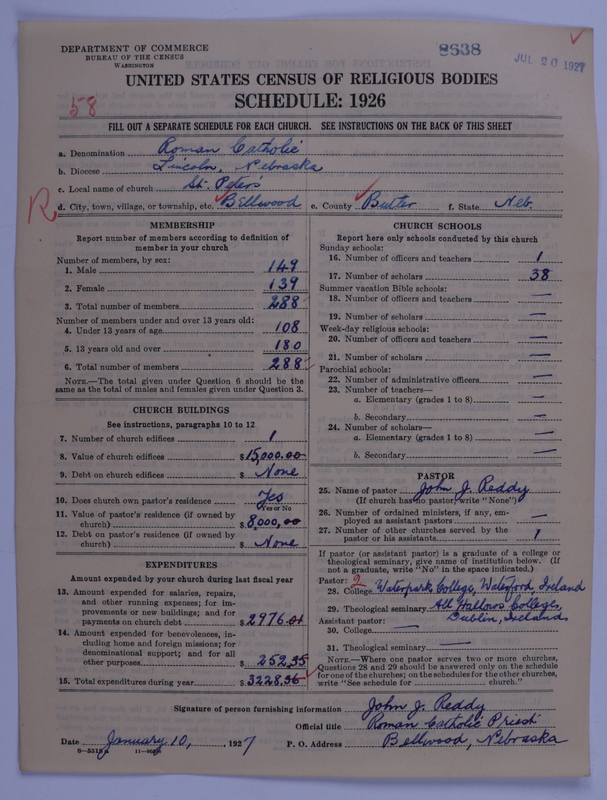 DEPARTMENT OF COMMERCE
BUREAU OF THE CENSUS
WASHINGTON
8638
JUL 20 1927
UNITED STATES CENSUS OF RELIGIOUS BODIES
SCHEDULE: 1926
58
FILL OUT A SEPARATE SCHEDULE FOR EACH CHURCH. SEE INSTRUCTIONS ON THE BACK OF THIS SHEET
a. Denomination Roman Catholic
b. Diocese Lincoln, Nebraska
c. Local name of church St. Peter's
R
d. City, town, village, or township, etc. Bellwood e. County Butler f. State Neb.
MEMBERSHIP
Report number of members according to definition of
member in your church
Number of members, by sex:
1. Male 149
2. Female 139
3. Total number of members 288
Number of members under and over 13 years old:
4. Under 13 years of age 108
5. 13 years old and over 180
6. Total number of members 288
NOTE.—The total given under Question 6 should be
same as the total of males and females given under Question 3.
CHURCH BUILDINGS
See instructions, paragraphs 10 to 12
7. Number of church edifices 1
8. Value of church edifices $15,000.00
9. Debt on church edifices $ None
10. Does church own pastor's residence Yes
Yes or No
11. Value of pastor's residence (if owned by
church) $8,000,00
12. Debt on pastor's residence (if owned by
church) $ None
EXPENDITURES
Amount expended by your church during last fiscal year
13. Amount expended for salaries, repairs,
and other running expenses; for im-
provements or new buildings; and for
payments on church debt $2976.01
14. Amount expended for benevolences, in-
cluding home and foreign missions; for
denominational support; and for all
other purposes $252.35
15. Total expenditures during year $3228.36
CHURCH SCHOOLS
Report here only schools conducted by this church
Sunday schools:
16. Number of officers and teachers 1
17. Number of scholars 38
Summer vacation Bible schools:
18. Number of officers and teachers —
19. Number of scholars —
Week-day religious schools:
20. Number of officers and teachers —
21. Number of scholars —
Parochial schools:
22. Number of administrative officers —
23. Number of teachers—
a. Elementary (grades 1 to 8) —
b. Secondary —
24. Number of scholars—
a. Elementary (grades 1 to 8) —
b. Secondary —
PASTOR
25. Name of pastor John J. Reddy
(If church has no pastor, write "None")
26. Number of ordained ministers, if any, em-
ployed as assistant pastors —
27. Number of other churches served by the
pastor or his assistants 1
If pastor (or assistant pastor) is a graduate of a college or
theological seminary, give name of institution below. (If
not a graduate, write "No" in the space indicated.)
Pastor: 2
28. College Waterpark College, Waterford, Ireland
29. Theological seminary All Hallows College,
Dublin, Ireland.
Assistant pastor:
30. College —
31. Theological seminary —
NOTE.—Where one pastor serves two or more churches,
Questions 28 and 29 should be answered only on the schedule
for one of the churches; on the schedules for the other churches,
write "See schedule for church."
Signature of person furnishing information John J. Reddy
Official title Roman Catholic Priest
Date January 10, 1927 P. O. Address Bellwood, Nebraska